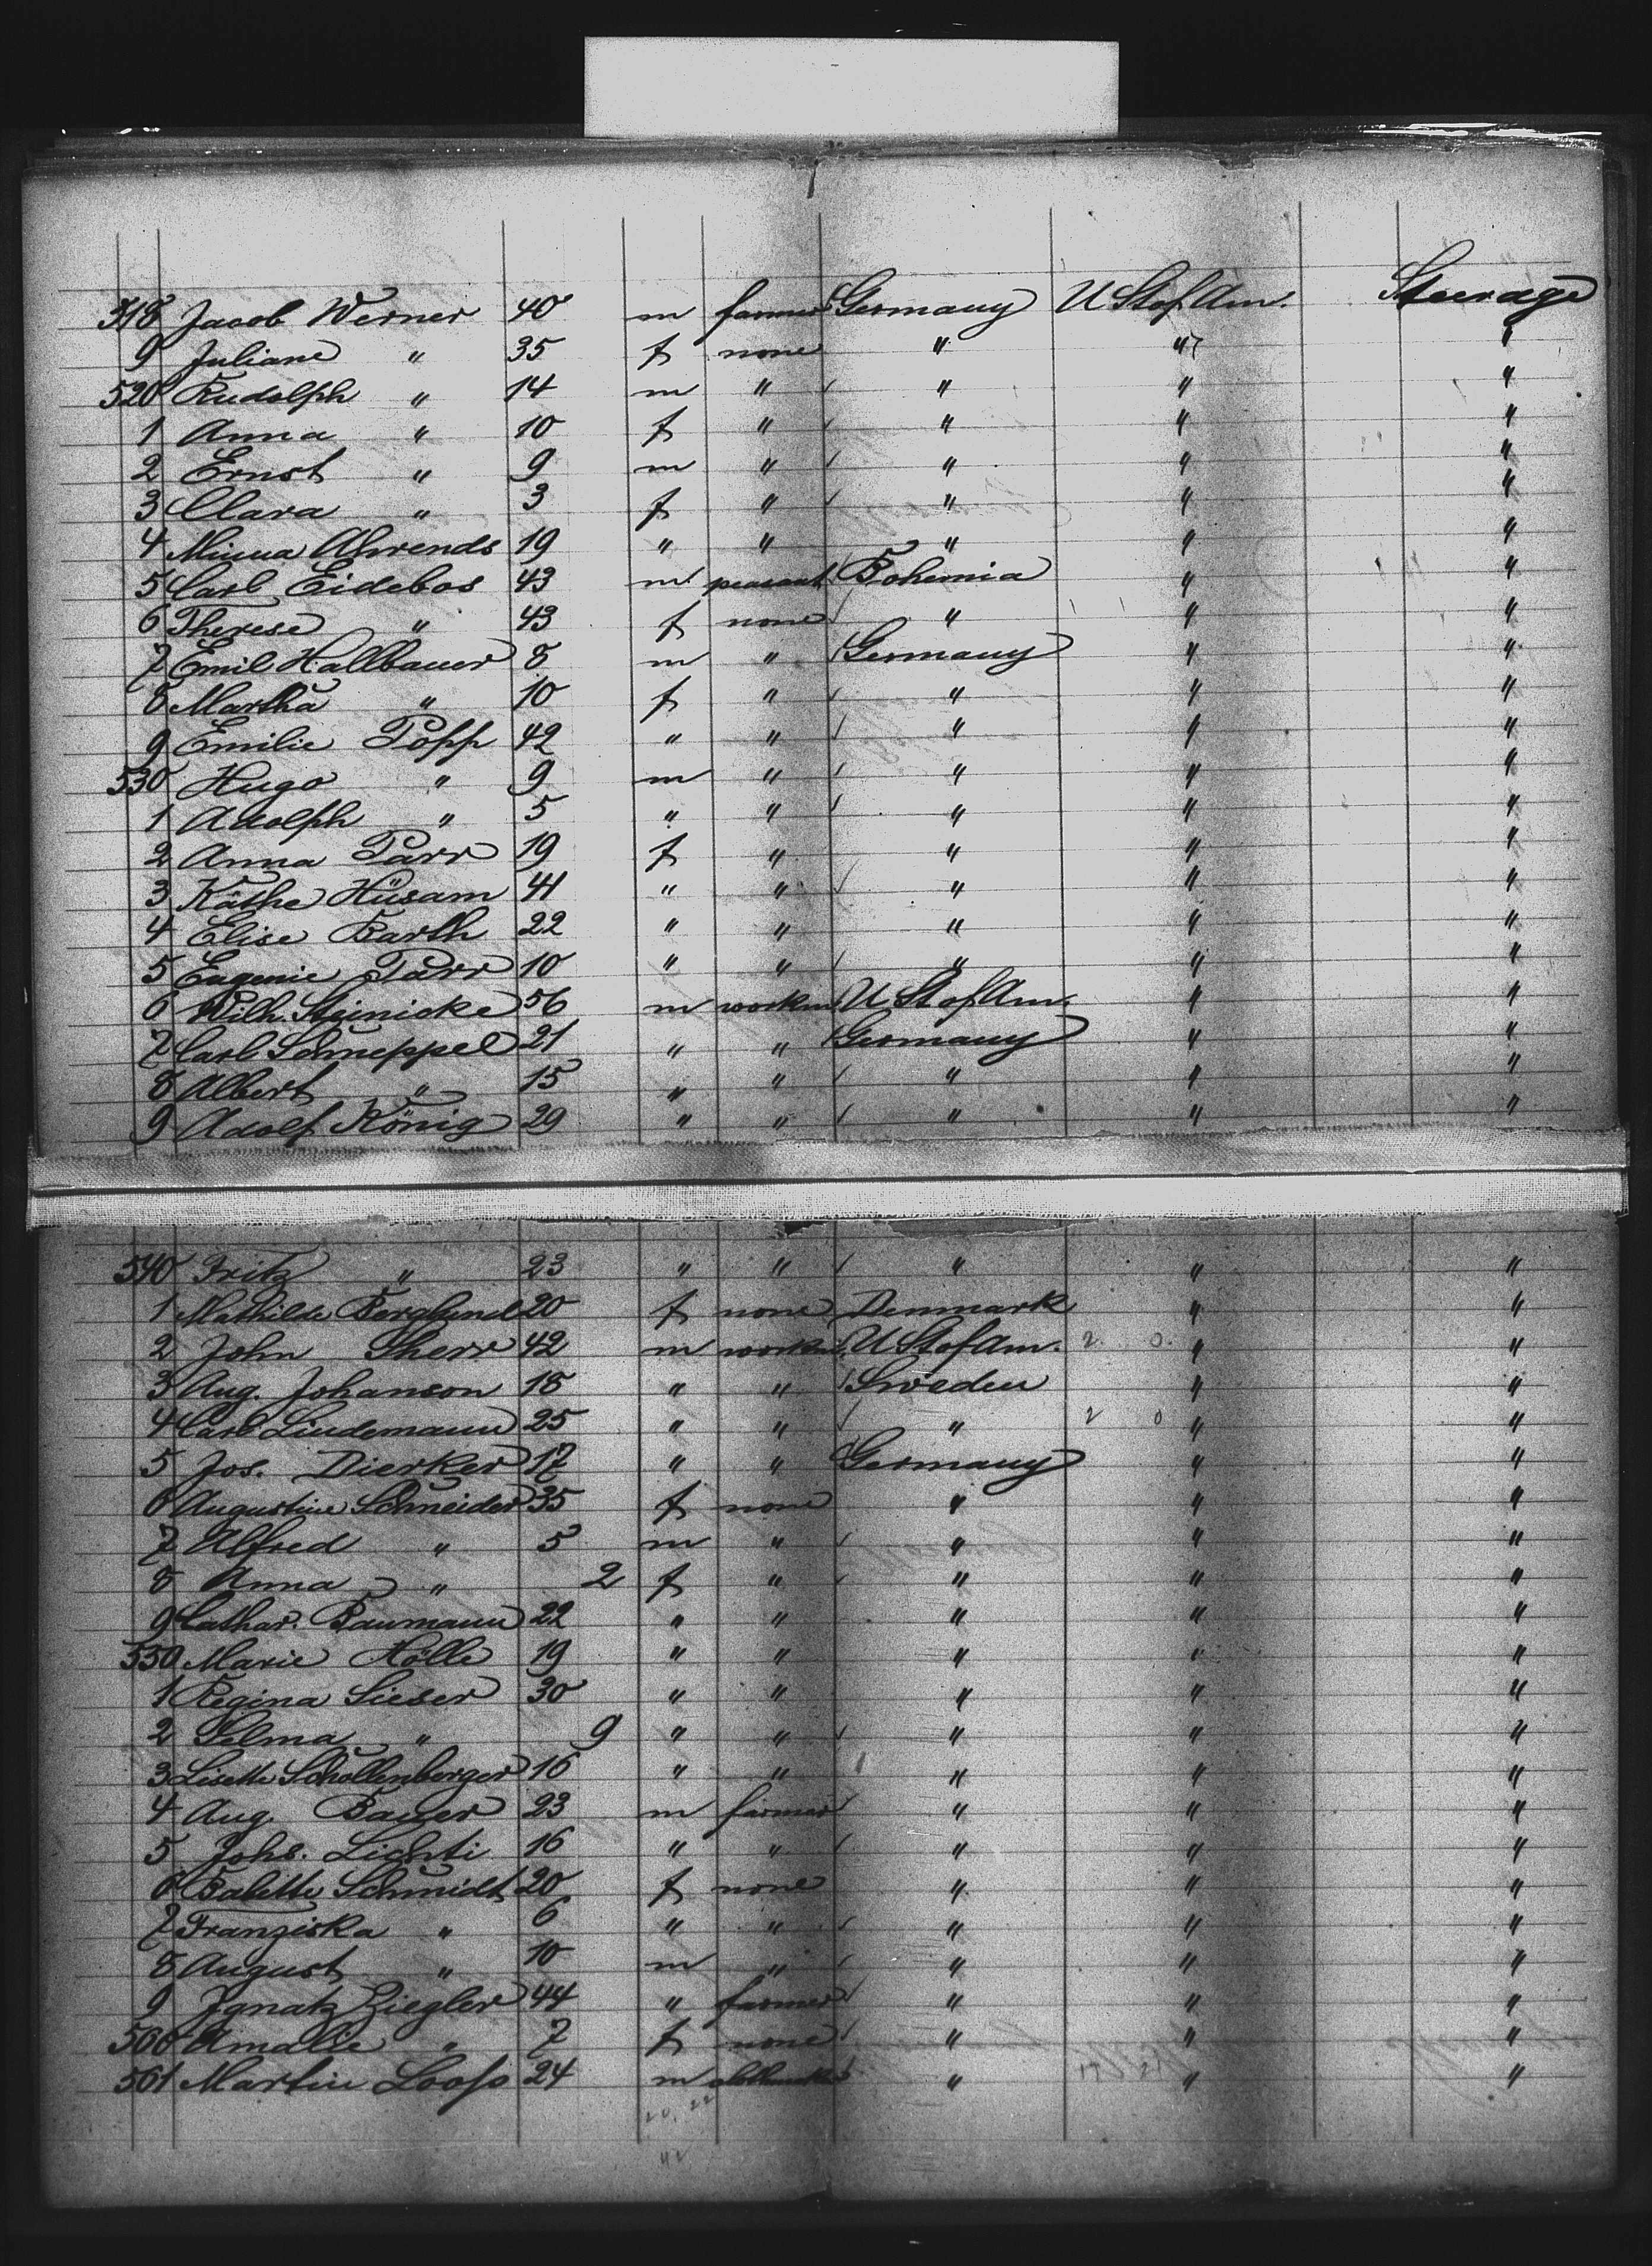 518 Jacob Werner 40 m farmer Germany U St of Am. Steerage
9 Juliane " 35 f none " " "
520 Rudolph " 14 m " " " "
1 Anna " 10 f " " " "
2 Ernst " 9 m " " " "
3 Clara " 3 f " " " "
4 Minna Ahrends 19 " " " " "
5 Carl Eidebos 43 m peasant Bohemia " "
6 Therese " 43 f none " " "
7 Emil Hallbauer 8 m " Germany " "
8 Martha " 10 f " " " "
9 Emilie Popp 42 " " " " "
530 Hugo " 9 m " " " "
1 Adolph " 5 " " " " "
2 Anna Parr 19 f " " " "
3 Käthe Hüsam 41 " " " " "
4 Elise Barth 22 " " " " "
5 Eugenie Parr 10 " " " " "
6 Wilh. Steinicke 56 m workm U St of Am. " "
7 Carl Schneppel 21 " " Germany " "
8 Albert " 15 " " " " "
9 Adolf König 29 " " " " "
540 Fritz " 23 " " " " "
1 Mathilde Berglund 20 f none Denmark " "
2 John Sherr 42 m workm. U St of Am. 2. 0. " "
3 Aug. Johanson 18 " " Sweden " "
4 Carl Lindemann 25 " " " 2 0 " "
5 Jos. Dierker 17 " " Germany " "
6 Augustine Schneider 35 f none " " "
7 Alfred " 5 m " " " "
8 Anna " 2 f " " " "
9 Cathar. Baumann 22 " " " " "
550 Marie Hölle 19 " " " " "
1 Regina Sieser 30 " " " " "
2 Selma " 9 " " " " "
3 Lisette Schollenberger 16 " " " " "
4 Aug. Bauer 23 m farmer " " "
5 Johs. Lichti 16 " " " " "
6 Babette Schmidt 20 f none " " "
7 Franziska " 6 " " " " "
8 August " 10 m " " " "
9 Ignatz Ziegler 44 " farmer " " "
560 Amalie " 7 f none " " "
561 Martin Loofs 24 m " " "